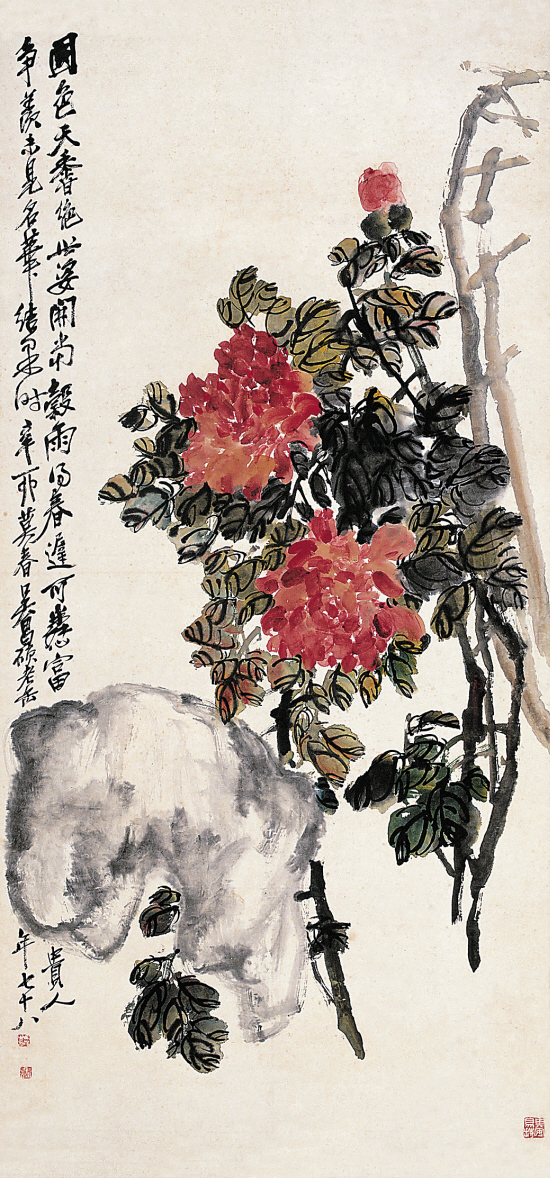 國色天香絕世姿開當穀雨得春遲可憐富
貴人
爭羨未見名華結果時辛酉莫春吳昌碩老缶
年七十八